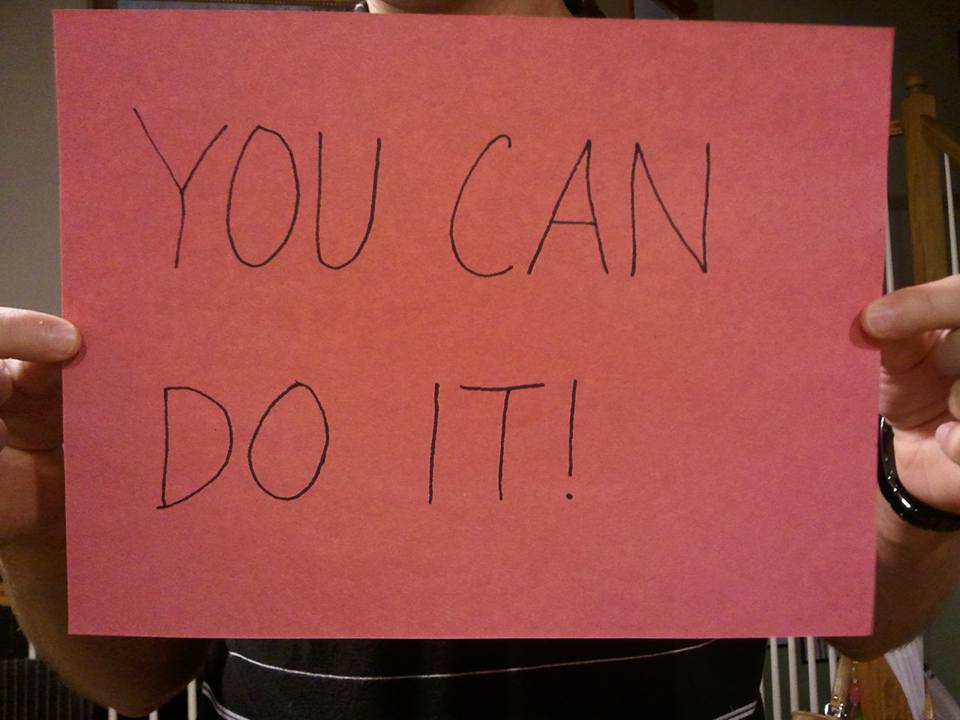 YOU CAN
DO IT!